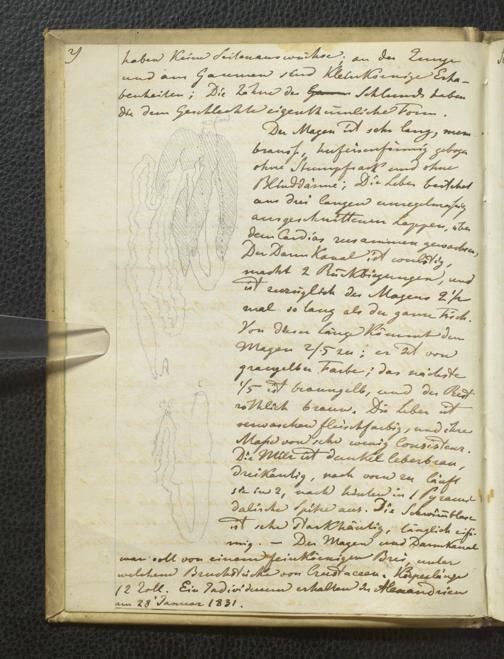 haben keine Seitenauswüchse; an der Zunge
und am Gaumen sind kleinkörnige Erha-
benheiten; Die Zähne des Schlunds haben
die dem Geschlechte eigenthümliche Form.
Der Magen ist sehr lang, mem
branos, hufeisenförmig gebogen
ohne Stumpfsack und ohne
Blinddärme; Die Leber besteht
aus drei langen unregelmäsig
ausgeschnittenen Lappen, über
dem Cardias zusammen gewachsen,
Der Darmkanal ist
macht 2 Rückbiegungen, und
ist bezüglich des Magens 2 1/2
mal so lang als der ganze Fisch.
Von dieser Länge kömmt dem
Magen 2/5 zu; er ist von
graugelber Farbe; das nächste
1/5 ist braungelb, und der Rest
röthlich braun. Die Leber ist
verwaschen fleischfarbig, und ihre
Masse von sehr wenig Consistenz.
Die Milz ist dunkel leberbraun,
dreikantig, nach vorn zu läuft
sie in 2, nach hinten in 1 Pyrami-
dalische Spitze aus. Die Schwimmblase
ist sehr starkhäutig, länglich eiför-
mig. – Der Magen und Darmkanal
war voll von einem feinkörnigen Brei, unter
welchem Bruchstücke von Crustaceen. Körperlänge
12 Zoll. Ein Individuum erhalten in Alexandrien
am 28 Januar 1831.
A